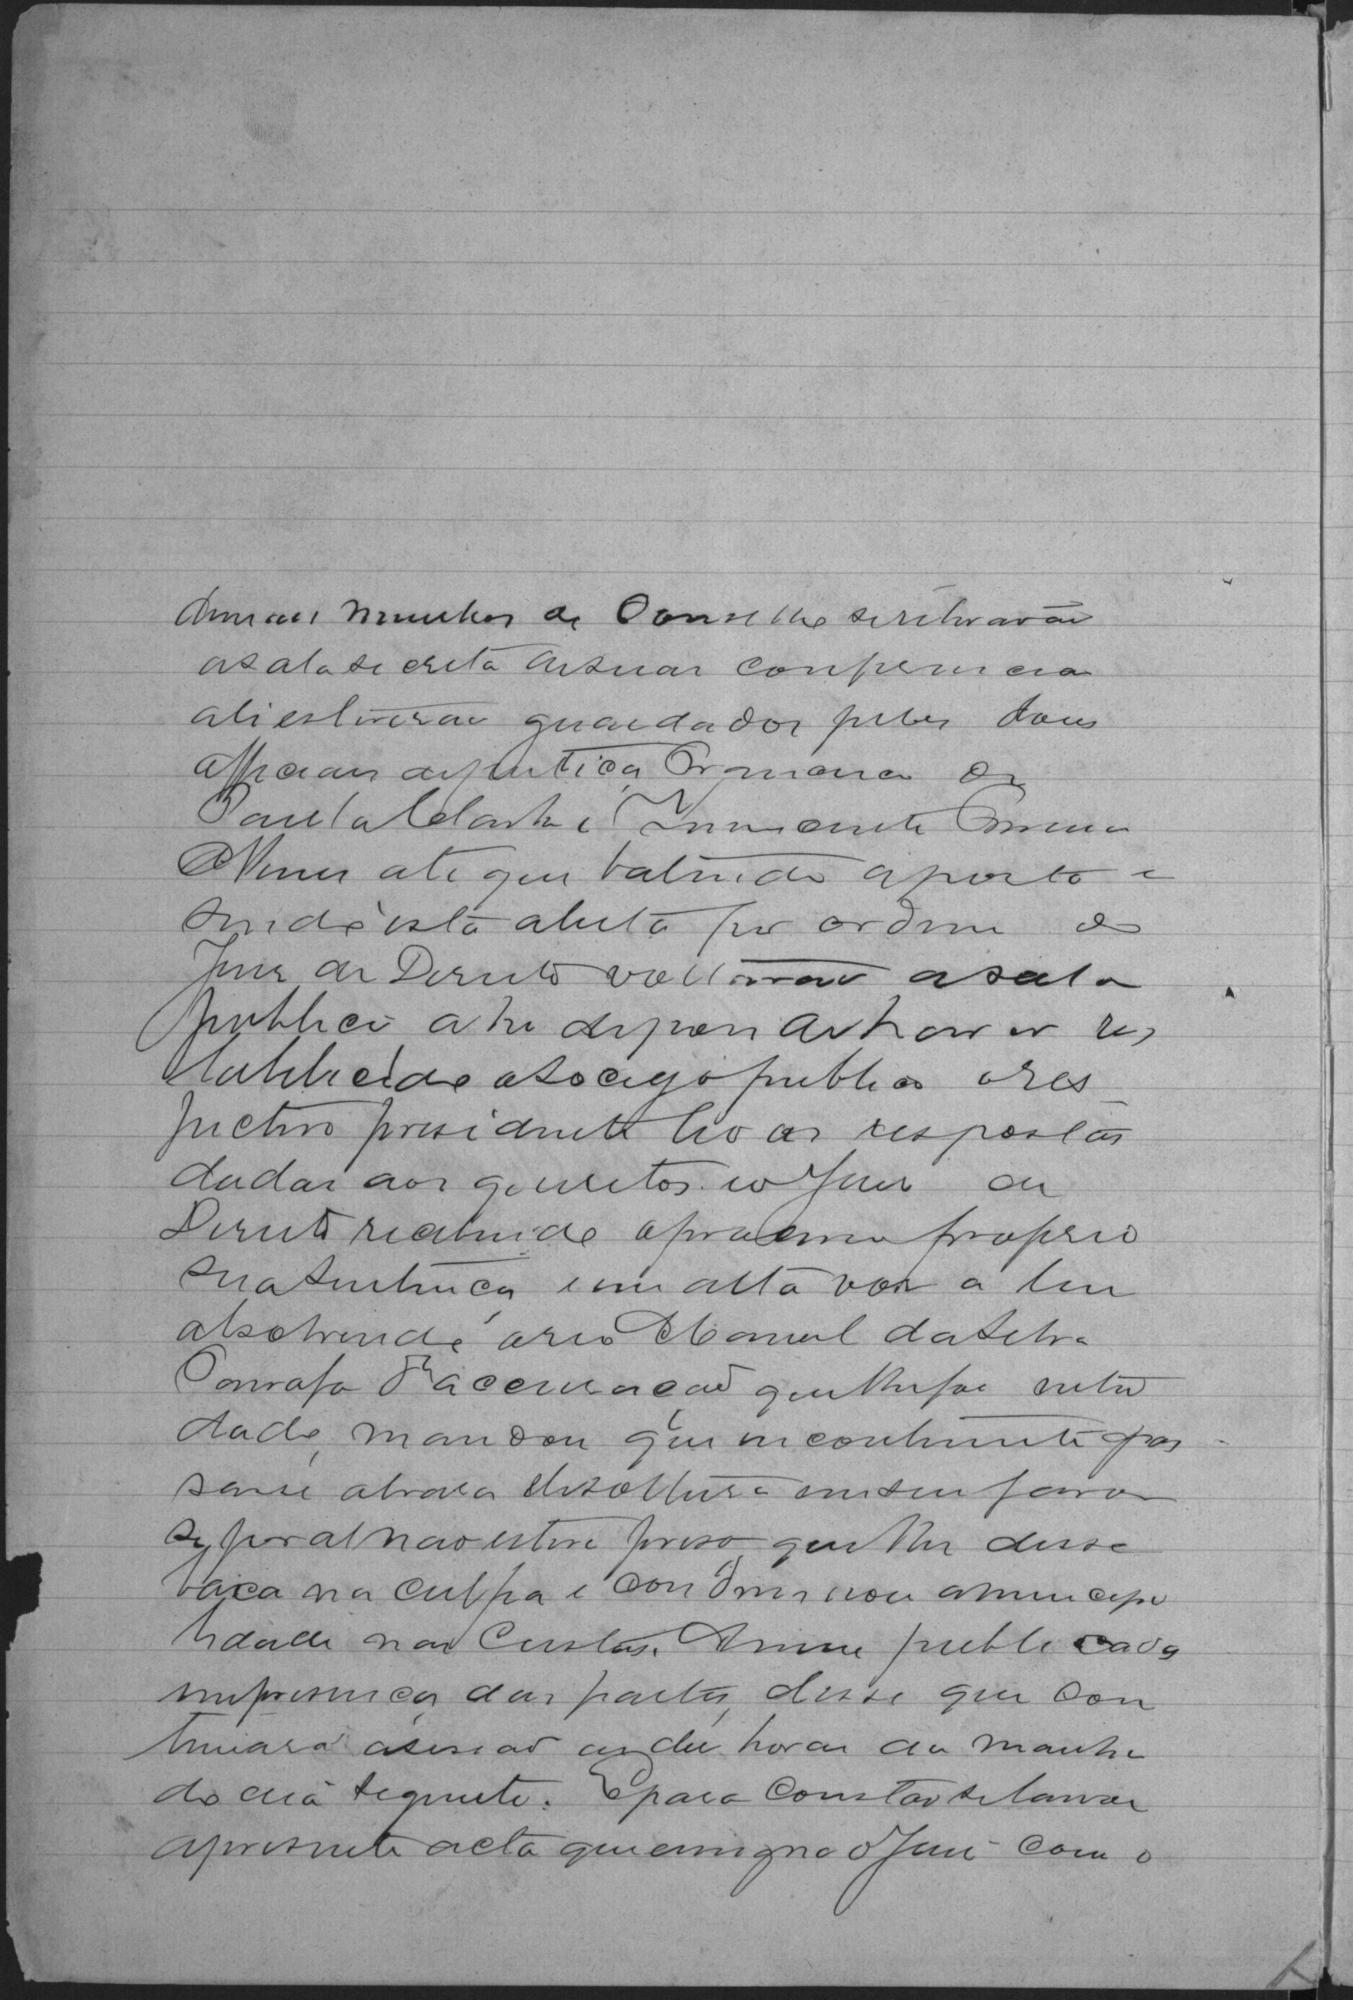 demais membros do Conselho se retirarão
a sala secreta de suas conferencia
ali estiverão guardados pelos dous
officiaes de justiça de
Paula e Innocente
até que batendo a porta e
sendo esta aberta por ordem do
Juiz de Direito voltarão a sala
publica ahi depois de haver res
tabelecido o socego publico o res
pectivo presidente leo as respostas
dadas aos quesitos e o Juiz de
Direito recebendo o proprio
sua sentença e em alta voz a leu
absolvendo o reo Manoel da Silva
da accusação que lhe foi inten
tada, mandou que incontinente pas
sasse alvara de soltura em seu favor
se por al não estive preso que lhe desse
baixa na culpa e condemnou a municipa
lidade nas Custas. publicada
em presença das partes, disse que con
tinuara a sessão as dez horas da manhã
do dia seguinte. E para constar se lavrou
a presente acta que assigna o Juiz com o